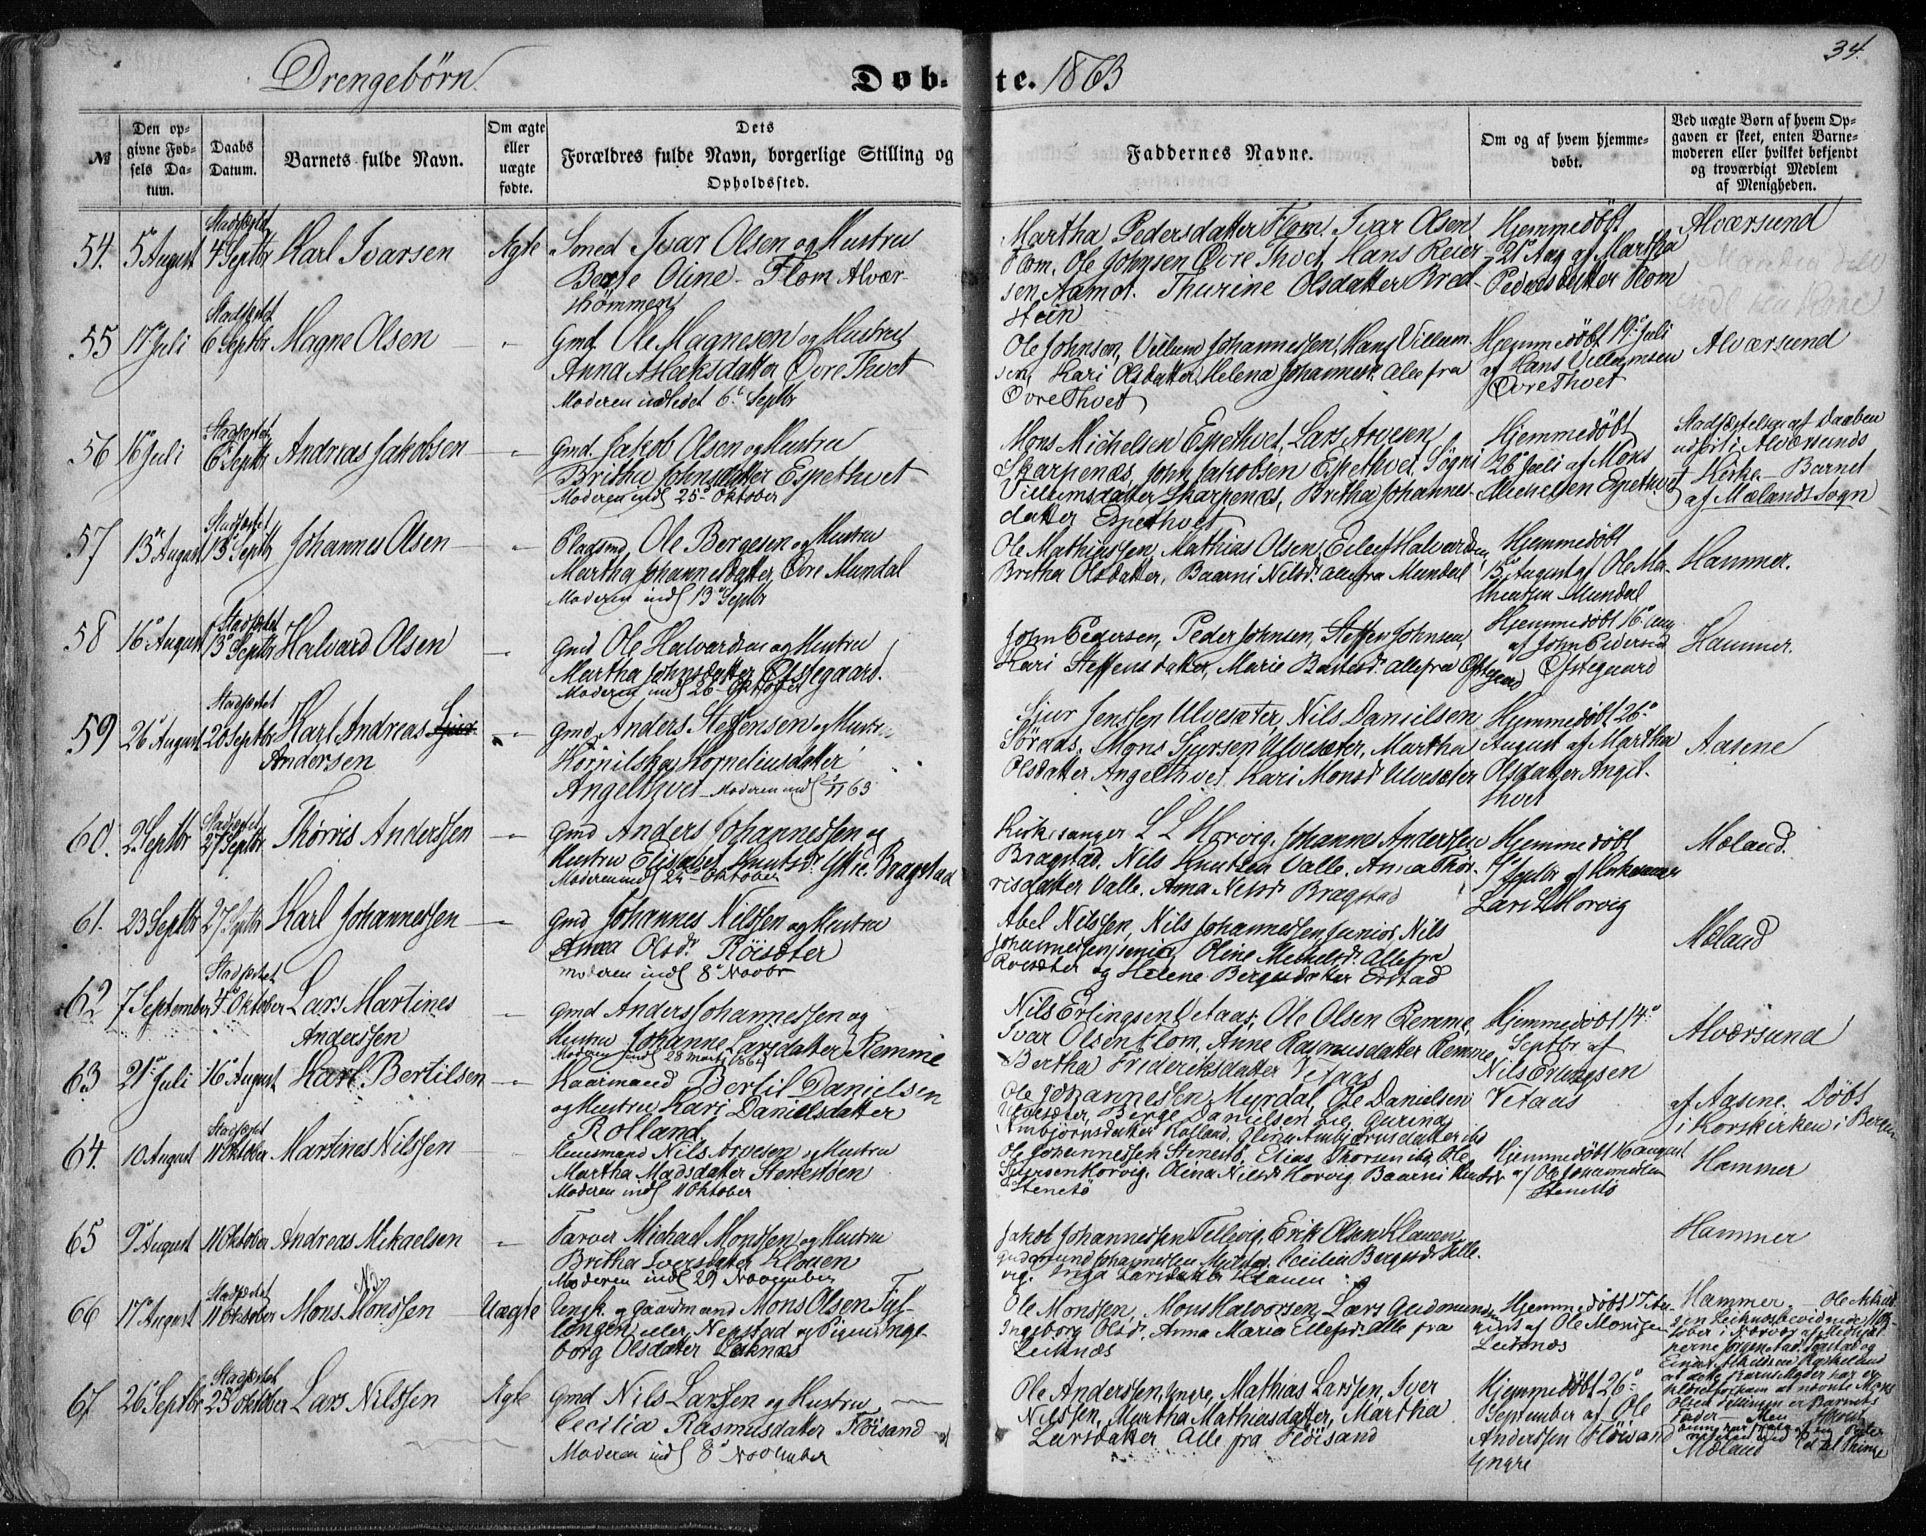 34.
Drengebørn. Døb- te. 1863
№
Den opgivne Fødsels Datum.
Daabs Datum.
Barnets fulde Navn.
Om ægte eller uægte fødte.
Dets Forældres fulde Navn, borgerlige Stilling og Opholdssted.
Faddernes Navne.
Om og af hvem hjemmedøbt.
Ved uægte Børn af hvem Opgaven er skeet, enten Barnemoderen eller hvilket bekjendt og troværdigt Medlem af Menigheden.
54. 5 August Stadfæstet 4 Septbr Karl Ivarsen Ægte Smed Ivar Olsen og Hustru
Oline Flom Alvær-
strømmen
Martha Pedersdatter Flom, Ivar Olsen
Flom, Ole Johnsen Øvre Thvet, Hans Reier-
sen Aamot. Thurine Olsdatter Bred-
stein
Hjemmedøbt
21 Aug af Martha
Pedersdatter Flom
Alværsund
55 17 Juli Stadfæstet 6 Septbr Magne Olsen - " Gmd. Ole Magnesen og Hustru
Anna Aslaksdatter Øvre Thvet
Moderen indledet 6 Septbr
Ole Johnsen, Villum Johannessen, Hans Villum-
sen, Kari Olsdatter, Helena Johannesd. alle fra
Øvre Thvet
Hjemmedøbt 19 Juli
af Hans Villumsen
Øvre Thvet
Alværsund
56 16 Juli Stadfæstet 6 Septbr Andreas Jakobsen - " Gmd. Jakob Olsen og Hustru
Britha Johnsdatter Espethvet
Moderen indl 25 Oktober
Mons Michelsen Espethvet, Lars Arvesen
Skarpenæs, John Jakobsen Espethvet, Søgni
Villumsdatter Skarpenæs, Britha Johannes-
datter Espethvet
Hjemmedøbt
26 Juli af Mons
Michelsen Espethvet
Stadfæstelsen af Daaben
udført i Alværsunds
Kirke - Barnet
af Mælands Sogn
57 13 August Stadfæstet 13 Septbr Johannes Olsen - " Pladsmd. Ole Børgesen og Hustru
Martha Johannesdatter Øvre Mundal
Moderen indl 13 Septbr
Ole Mathiassen, Mathias Olsen, Eilef Halvardsen,
Britha Olsdatter, Baarni Nilsd. alle fra Mundal
Hjemmedøbt
15 August af Ole Ma-
thiassen Mundal
Hammer.
58 16 August Stadfæstet 13 Septbr Halvard Olsen - " Gmd Ole Halvardsen og Hustru
Martha Johnsdatter Østegaard.
Moderen indl 26 Oktober
John Pedersen, Peder Johnsen, Steffen Johnsen,
Kari Steffensdatter, Marie alle fra Østegaard
Hjemmedøbt 16 Aug
af John Pedersen
Østegaard
Hammer.
59 26 August Stadfæstet 20 Septbr Karl Andreas
Andersen
- " Gmd. Anders Steffensen og Hustru
Korneliusdatter
Angelthvet - Moderen indl 1/11 63
Sjur Jenssen Ulvesæter, Nils Danielsen
Søraas, Mons Sjursen Ulvesæter, Martha
Olsdatter Angelthvet, Kari Monsd. Ulvesæter
Hjemmedøbt 26
August af Martha
Olsdatter Angel-
thvet
Aasene
60. 2 Septbr Stadfæstet 27 Septbr Thorris Anderssen - " Gmd Anders Johannessen og
Hustru Elisabet Knutsd. Ytre Bragstad
Moderen indl 25 Oktober
Kirkesanger L L Horvig, Johannes Anderssen
Bragstad, Nils Knutsen Valle, Anna Thor-
risdatter Valle, Anna Nilsd. Bragstad
Hjemmedøbt
Septbr af Kirkesanger
Lars L Horvig
Mæland.
61. 23 Septbr 27 Septbr Karl Johannessen - " Gmd Johannes Nilssen og Hustru
Anna Olsd. Röisæter
Moderen indl 8 Novbr
Abel Nilssen, Nils Johannessen junior, Nils
Johannessen senior, Oline Mikkelsd. alle fra
Röisæter og Helene Bergesdatter Erstad
Mæland
62 7 September Stadfæstet 4 Oktober Lars Martines
Anderssen
" Gmd Anders Johannessen og
Hustru Johanne Larsdatter Remme
Moderen indl 28 marts 1864
Nils Erlingsen Vetaas, Ole Olsen Remme,
Ivar Olsen Flom, Anne Rasmusdatter Remme,
Bertha Frederiksdatter Vetaas
Hjemmedøbt 14
Septbr af
Nils Erlingsen
Vetaas
Alværsund
63 21 Juli 16 August Karl Bertilsen - " Kaarmand Bertil Danielsen
og Hustru Kari Danielsdatter
Rolland
Ole Johannessen Myrdal, Ole Danielsen
Ulvesæter, Berge Danielsen Gurina
Ambjørnsdatter Rolland, Olina Ambjørnsdatter ibd
af Aasene. Døbt
i Korskirken i Bergen
64. 10 August Stadfæstet 11 Oktober Martines Nilssen - " Huusmand Nils Arvesen og Hustru
Martha Madsdatter
Moderen indl 11 Oktober
Ole Johannessen Stenestø, Elias Thorsen ibd, Ole
Horvig, Olina Nilsd. Horvig, Baarni
Stenestø
Hjemmedøbt 16 August
af Ole Johannessen
Stenestø
Hammer
65 9 August 11 Oktober Andreas Mikaelsen " Farver Michael Monssen og Hustru
Britha Iversdatter Klouen
Moderen indl 29 November
Jakob Johannessen Tellevig, Erik Olsen Klauen,
Gudmund Johannessen Cecilia Bergesd. Telle-
vig, Inga Larsdatter Klauen
Hammer
66 17 August Stadfæstet 11 Oktober Mons Monssen Uægte Ungk. og Gaardmand Mons Olsen
eller Nepstad og Pigen Inge-
borg Olsdatter Leiknæs
Ole Monssen, Mons Halvorsen, Lars Gudmundsen
Ingeborg Olsd. Anna Maria Ellefsd. alle fra
Leiknæs
Hjemmedøbt 17 Au-
gust af Ole Monssen
Leiknæs
Hammer
67 26 Septbr Stadfæstet 25 Oktober Lars Nilssen Ægte Gmd Nils Larssen og Hustru
Cecilia Rasmusdatter Fløisand
Moderen indl 8 November
Ole Anderssen yngre, Mathias Larssen, Iver
Nilssen, Martha Mathiasdatter, Martha
Larsdatter Alle fra Fløisand
Hjemmedøbt 26
September af Ole
Anderssen Fløisand
Yngre
Mæland